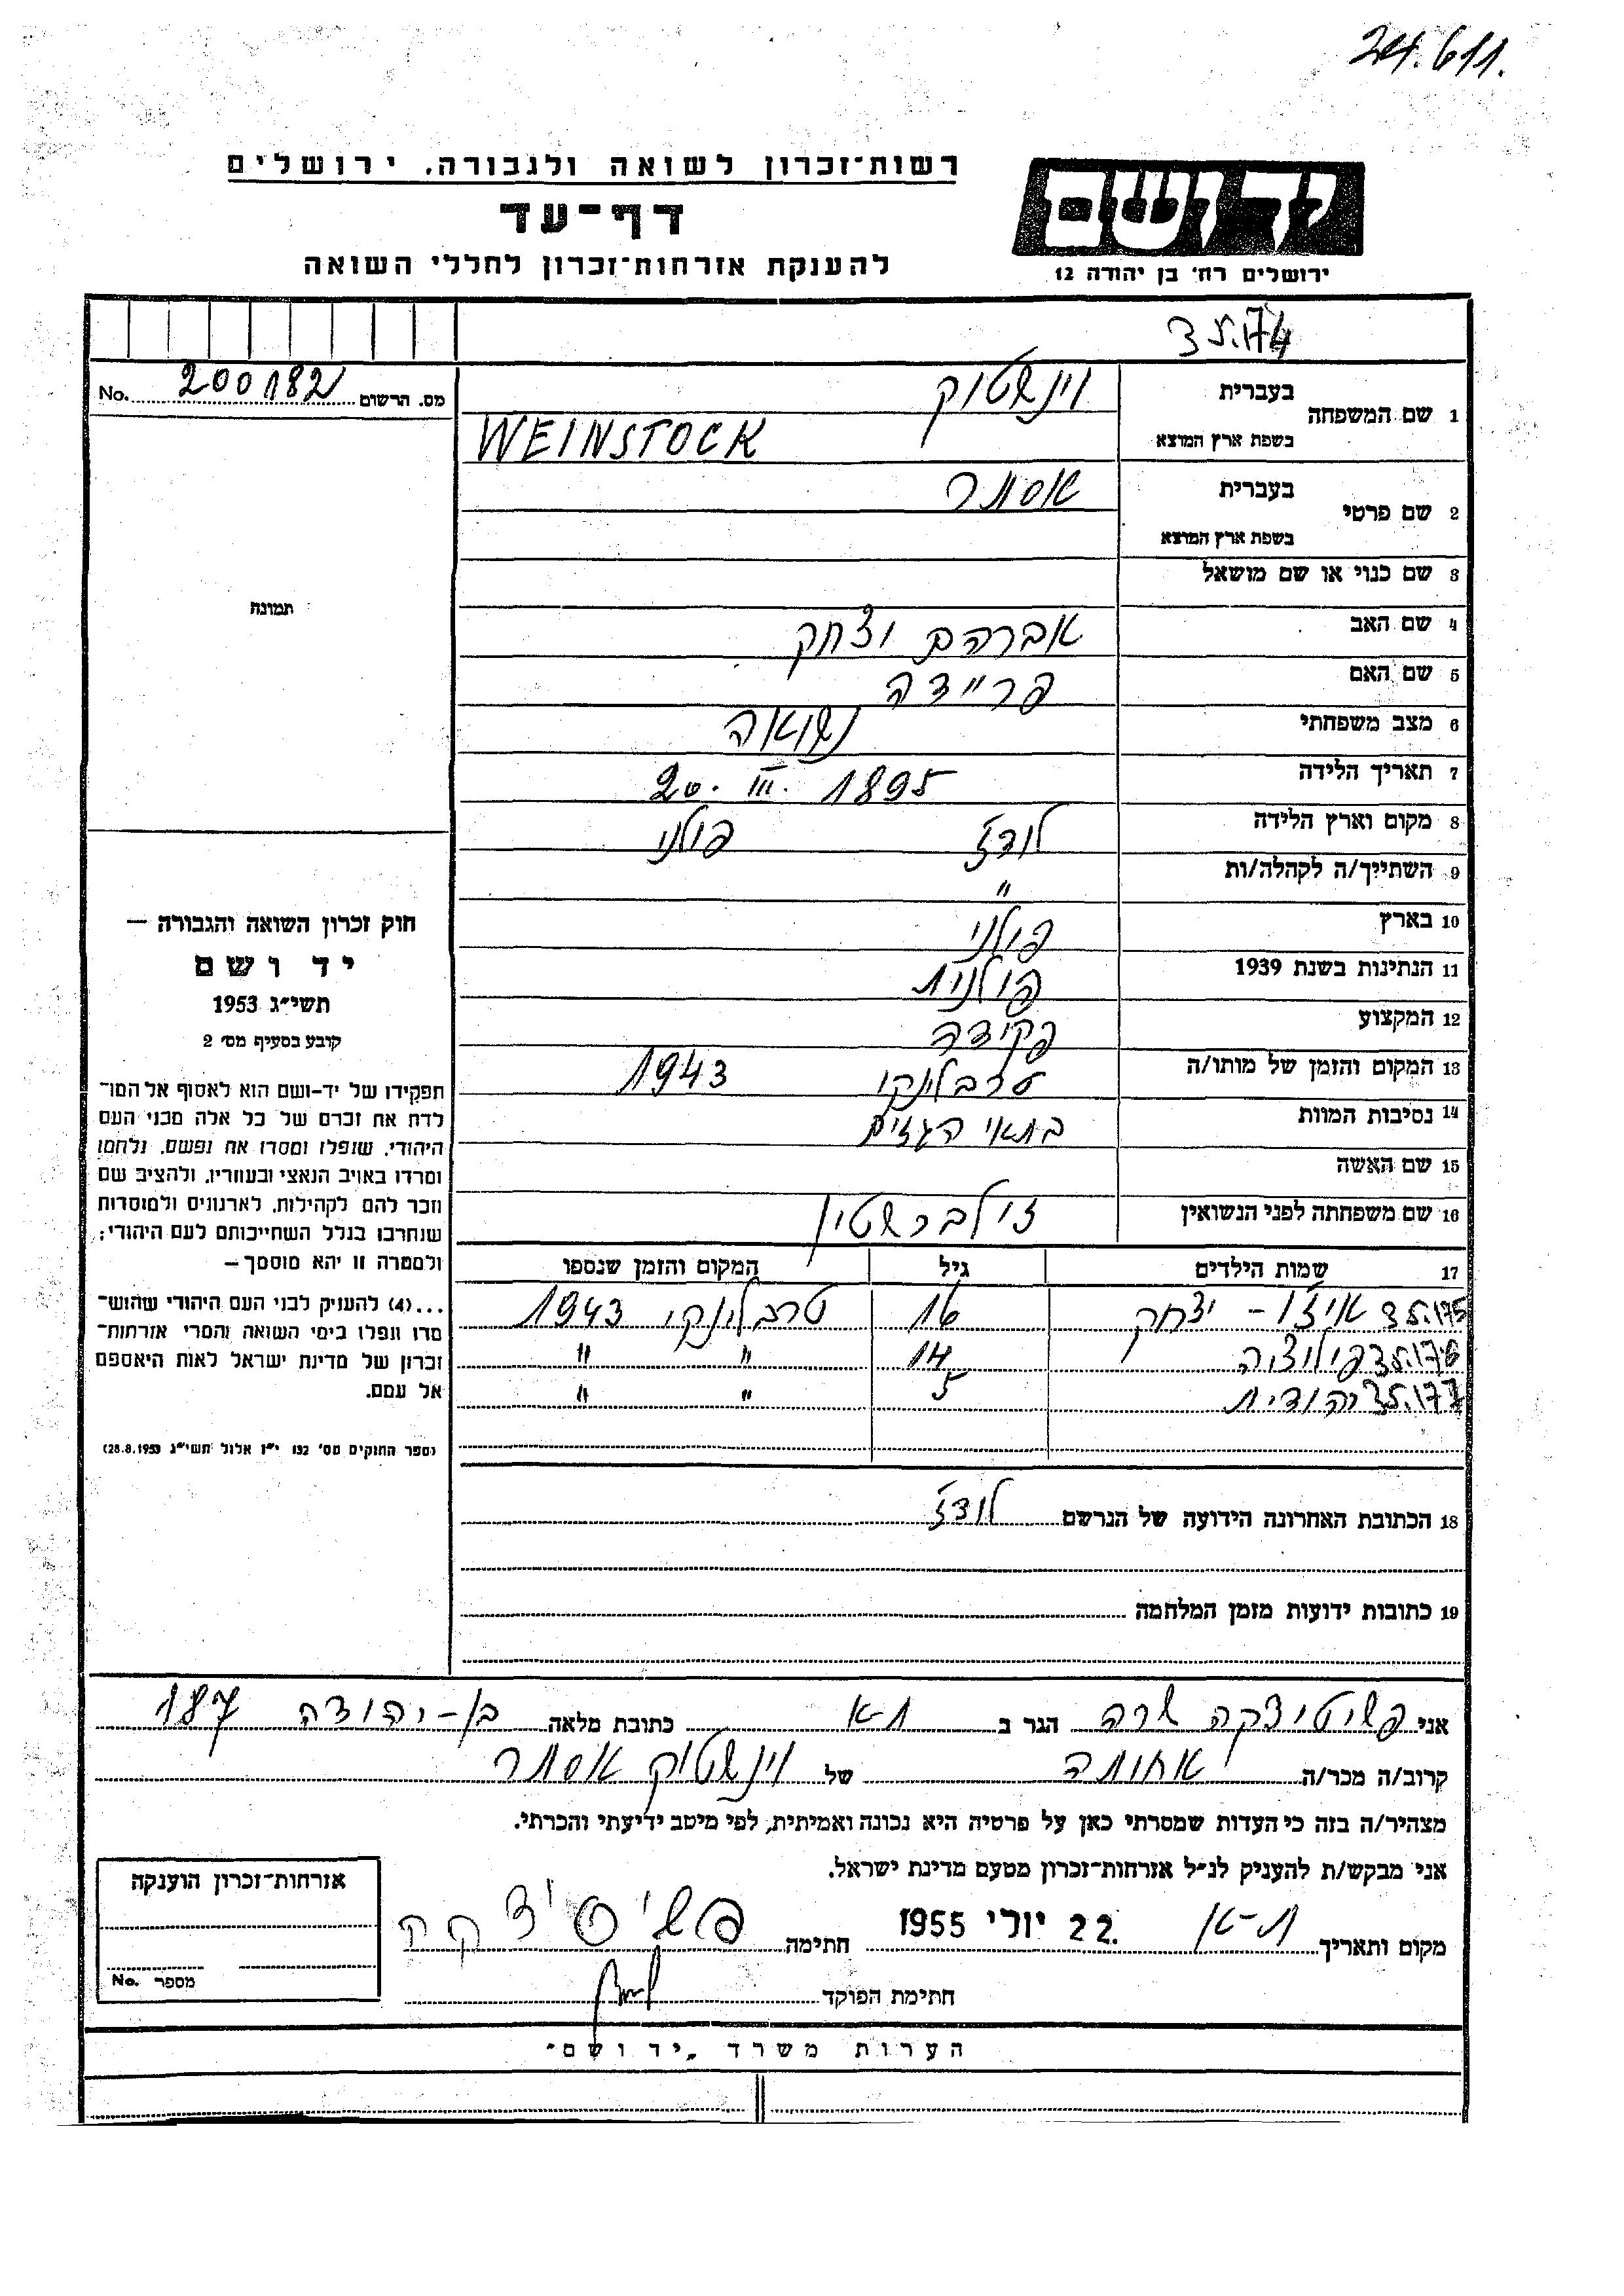 24.611.
רשות־זכרון לשואה ולגבורה, ירושלים
דף־עד
להענקת אזרחות־זכרון לחללי השואה
יד ושם
ירושלים רח׳ בן יהודה 12
35.174
מס. הרשום 200182 No.
1 שם המשפחה בעברית וינשטוק
בשפת ארץ המוצא WEINSTOCK
2 שם פרטי בעברית אסתר
בשפת ארץ המוצא
3 שם כנוי או שם מושאל
4 שם האב אברהם יצחק
5 שם האם פריידה
6 מצב משפחתי נשואה
7 תאריך הלידה 20. III. 1895
8 מקום וארץ הלידה לודז פולני
9 השתייך/ה לקהלה/ות "
10 בארץ פולני
11 הנתינות בשנת 1939 פולנית
12 המקצוע פקידה
13 המקום והזמן של מותו/ה טרבלינקי 1943
14 נסיבות המוות בתאי הגזים
15 שם האשה
16 שם משפחתה לפני הנשואין זילברשטין
17 שמות הילדים גיל המקום והזמן שנספו
35.175 איז'ו - יצחק 16 טרבלינקי 1943
35.176 14 " "
35.177 יהודית 5 " "
18 הכתובת האחרונה הידועה של הנרשם לודז
19 כתובות ידועות מזמן המלחמה
תמונה
חוק זכרון השואה והגבורה —
יד ושם
תשי״ג 1953
קובע בסעיף מס׳ 2
תפקידו של יד־ושם הוא לאסוף אל המו־
לדת את זכרם של כל אלה מבני העם
היהודי, שנפלו ומסרו את נפשם, נלחמו
ומרדו באויב הנאצי ובעוזריו, ולהציב שם
וזכר להם לקהילות, לארגונים ולמוסדות
שנחרבו בגלל השתייכותם לעם היהודי;
ולמטרה זו יהא מוסמך —
...(4) להעניק לבני העם היהודי שהוש־
מדו ונפלו בימי השואה והמרי אזרחות־
זכרון של מדינת ישראל לאות היאספם
אל עמם.
(ספר החוקים מס׳ 132 י״ז אלול תשי״ג 28.8.1953)
אני פשיטיצקה שרה הגר ב ת-א כתובת מלאה בן-יהודה 187
קרוב/ה מכר/ה אחותה של וינשטוק אסתר
מצהיר/ה בזה כי העדות שמסרתי כאן על פרטיה היא נכונה ואמיתית, לפי מיטב ידיעתי והכרתי.
אני מבקש/ת להעניק לנ״ל אזרחות־זכרון מטעם מדינת ישראל.
מקום ותאריך ת-א 22. יולי 1955 חתימה פשיטיצקה
חתימת הפוקד
אזרחות־זכרון הוענקה
מספר No.
הערות משרד „יד ושם״